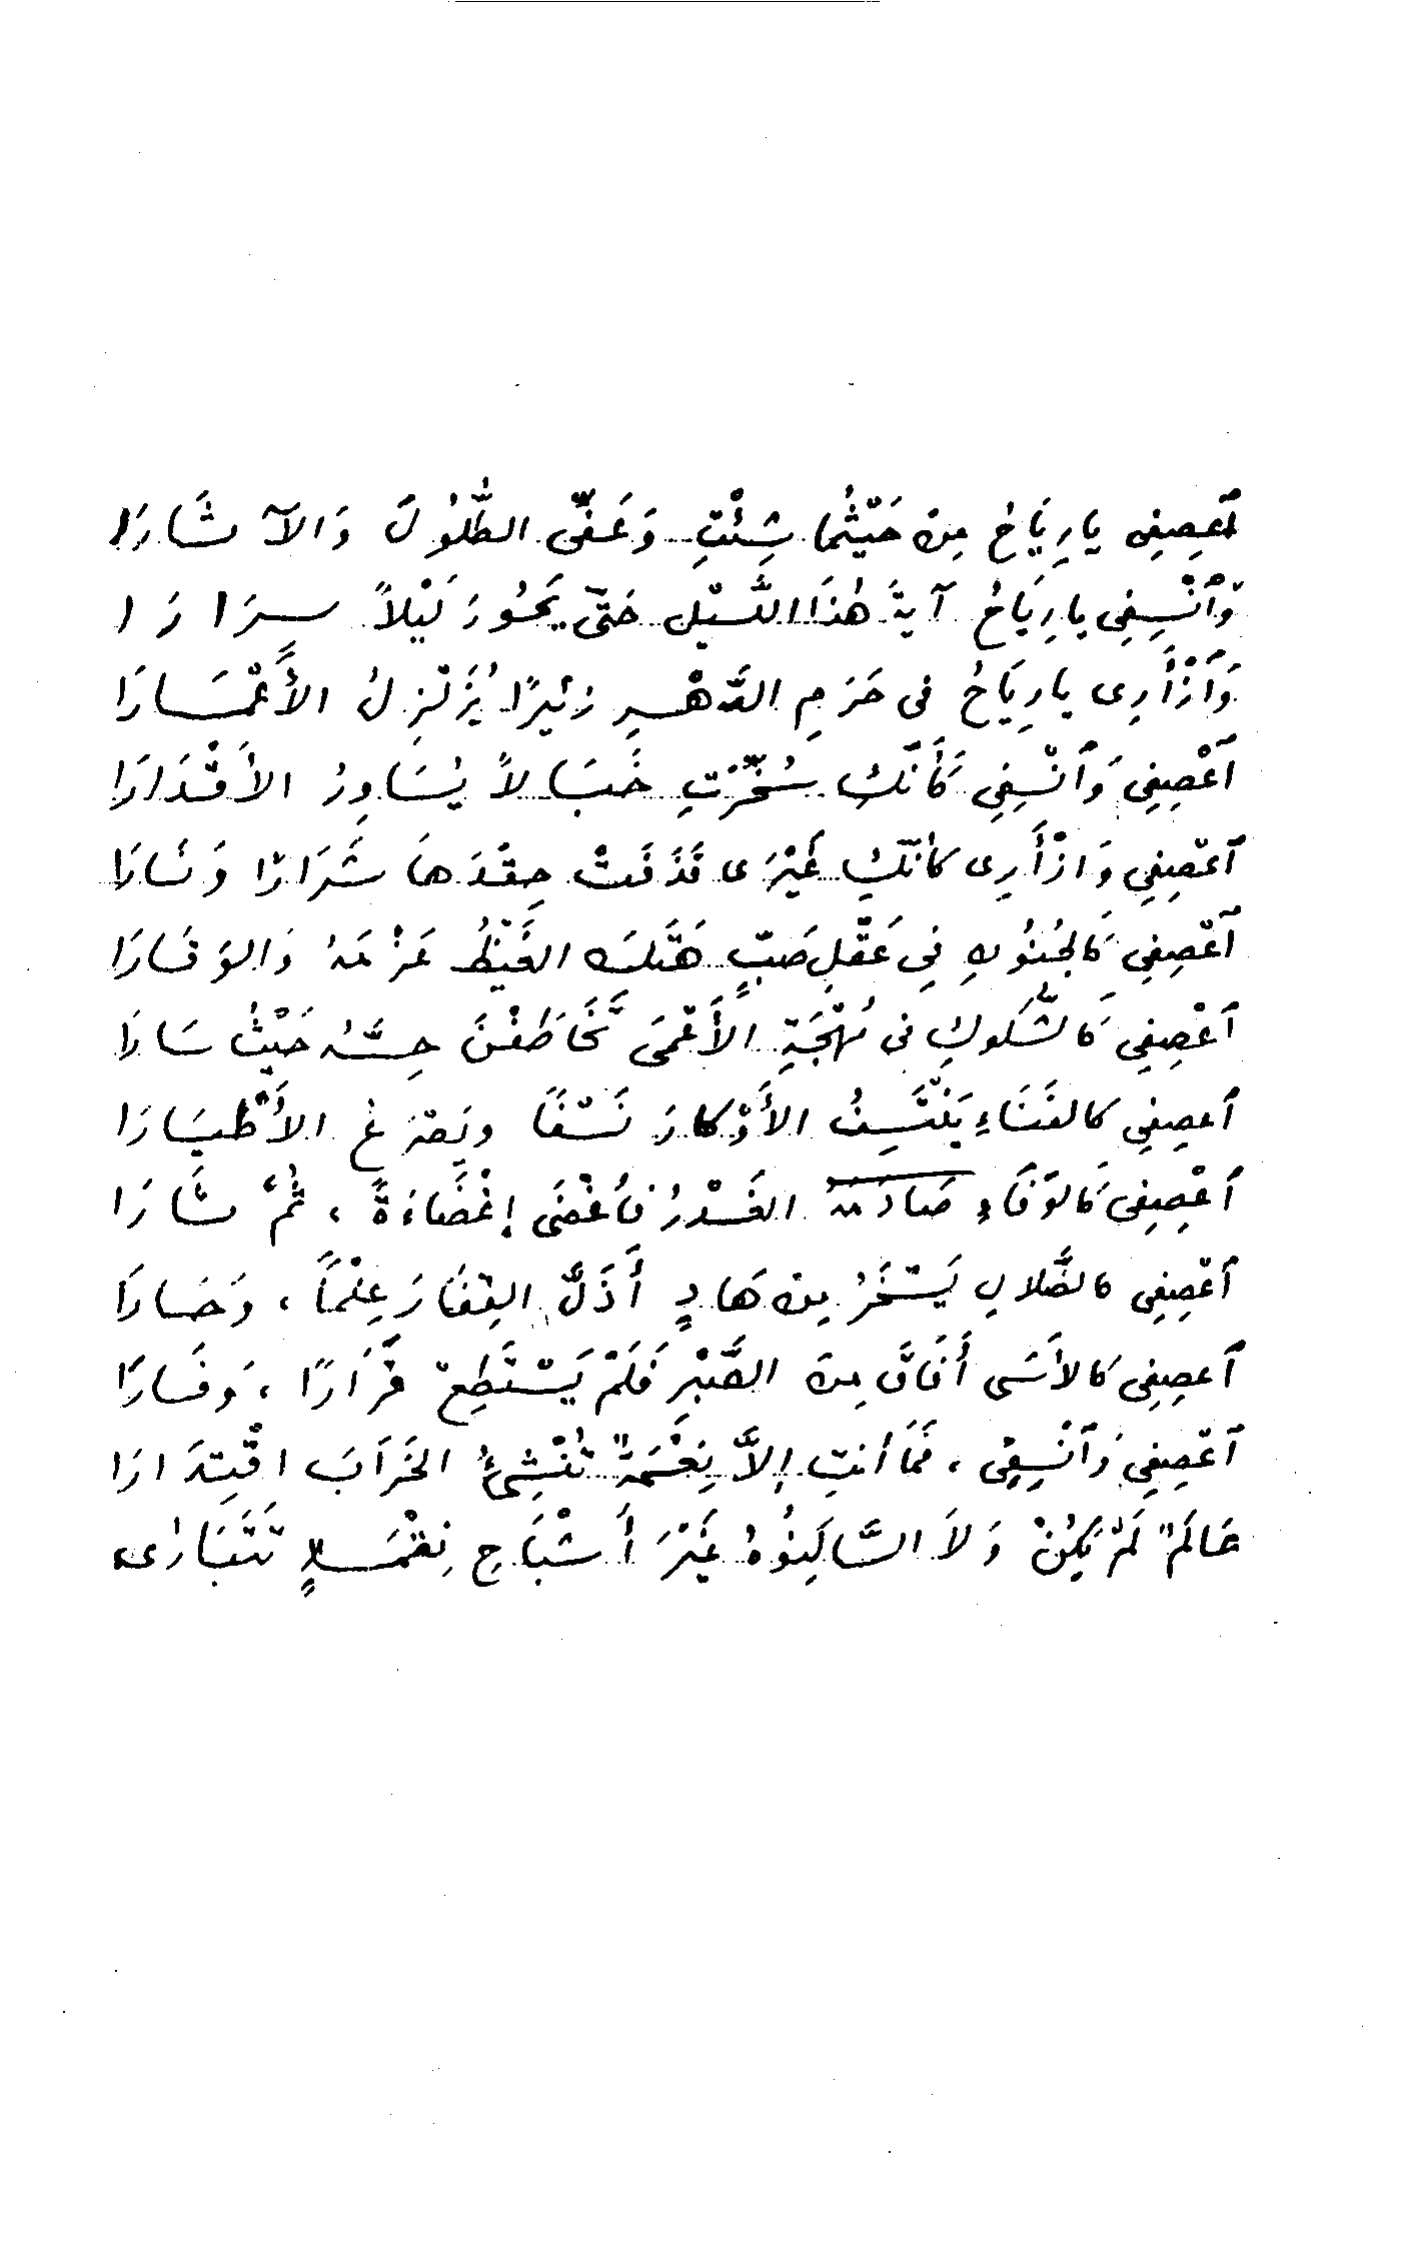 ٱعصِفِى يا رِيَاحُ مِنْ حَيْثُما شِئْتِ وَعَفِّى الطُّلُولَ وَالآثَارَا
وَٱنْسِفِى يا رِيَاحُ آيةَ هٰذَا اللَّيْلِ حَتَّى يَحُورَ لَيْلاً سِرَارَا
وَٱزْأَرِى يا رِيَاحُ فى حَرَمِ الدَّهْرِ زئِيرًا يُزَلْزِلُ الأَعْمَارَا
ٱعْصِفِى وَٱنْسِفِى كَأَنَّكِ سُخِّرْتِ خَبَالاً يُسَاوِرُ الأَقْدَارَا
ٱعْصِفِى وَازْأَرِى كأنَّكِ غَيْرَى قَذَفَتْ حِقْدَهَا شَرَارًا وَنَارَا
ٱعْصِفِى كَالجُنُونِ فِى عَقْلِ صَبٍّ هَتَكَ الغَيْظُ عَزْمَهُ وَالوَقَارَا
ٱعْصِفِى كَالشُّكوكِ فى مُهْجَةِ الأَعْمَى تَخَاطَفْنَ حِسَّهُ حَيْثُ سَارَا
ٱعصِفِى كالفَنَاءِ يَنْتَسِفُ الأَوْكارَ نَسْفًا ويَصْرَعُ الأَطْيَارَا
ٱعْصِفِى كَالوَفَاءِ صَادَمَهُ الغَدْرُ فأَغْضَى إغْضَاءَةً ، ثُمَّ ثَارَا
ٱعْصِفِى كالضَّلالِ يَسْخَرُ مِنْ هَادٍ أَذَلَّ القِفَارَ عِلْمًا ، وَحَارَا
ٱعصِفِى كَالأَسَى أَفَاقَ مِنَ الصَّبْرِ فَلَمْ يَسْتَطِعْ قَرَارًا ، وَفَارَا
ٱعْصِفِى وَٱنْسِفِى ، فَمَا أنتِ إلاَّ نِعْمَةٌ تُنْشِئُ الخَرَابَ اقْتِدَارَا
عَالَمٌ لَمْ يَكُنْ وَلاَ السَّاكِنُوهُ غَيْرَ أَشْبَاحِ نِقْمَةٍ تَتَبَارَى